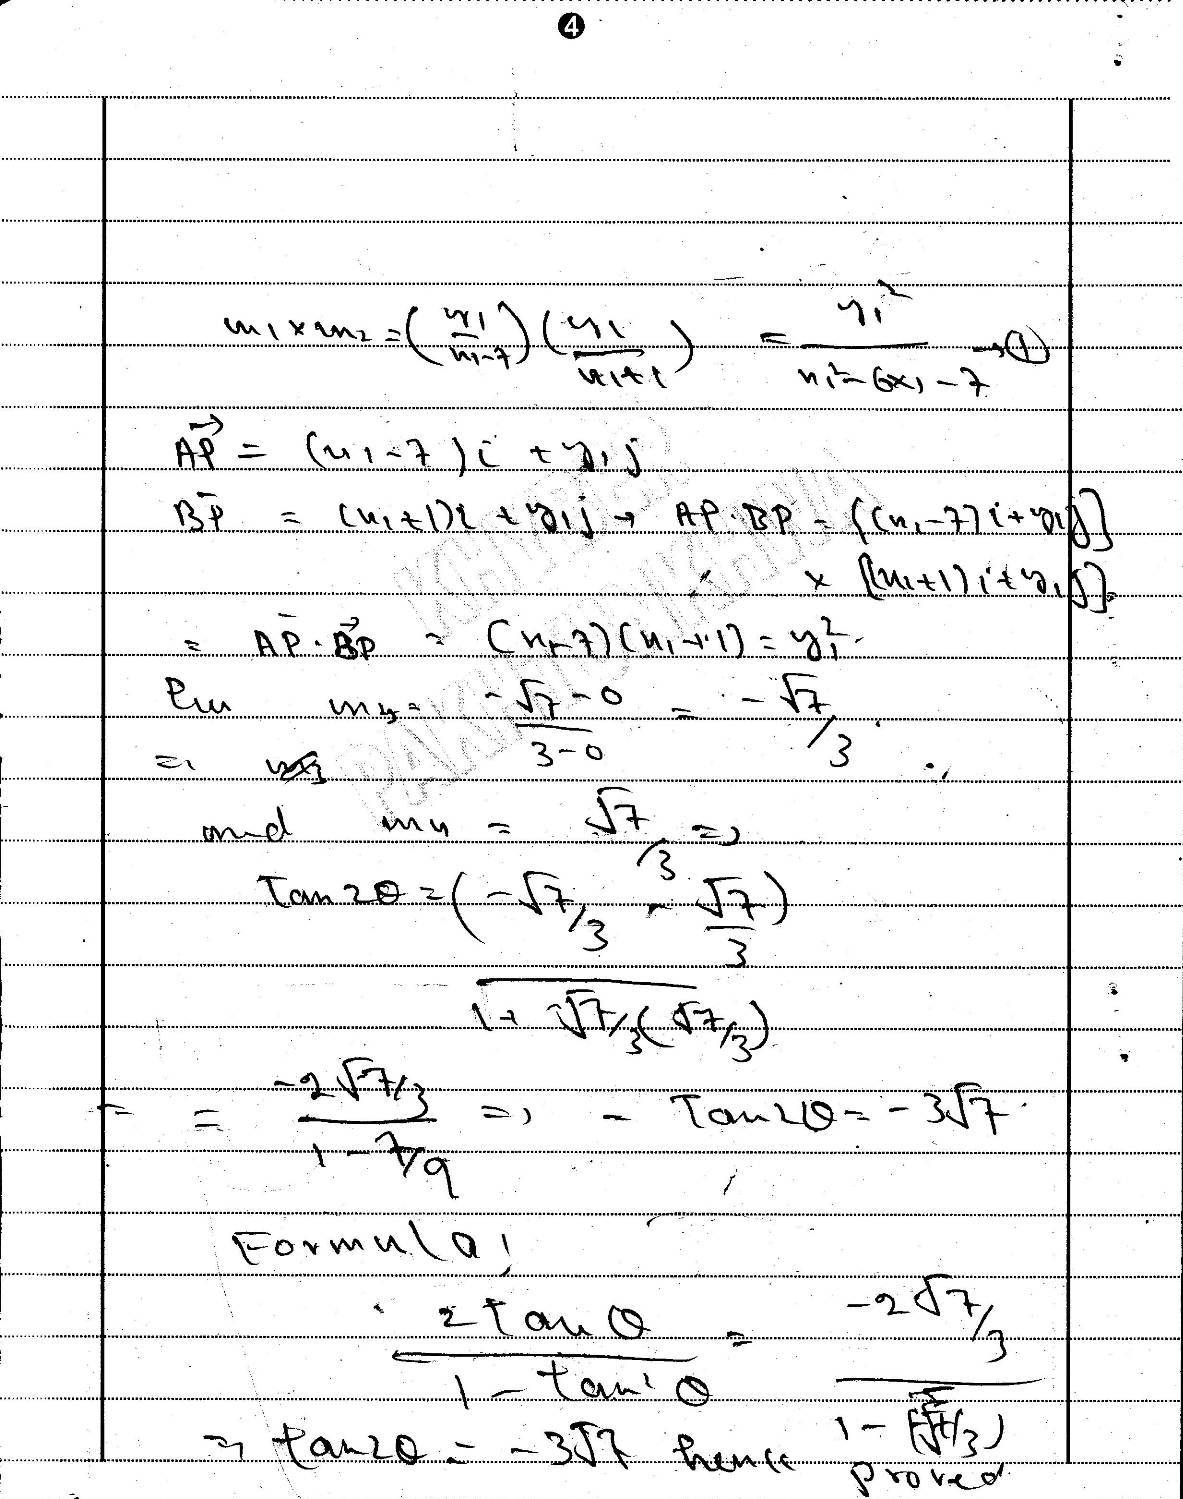 4
m₁ × m₂ = (y₁/(x₁-7)) (y₁/(x₁+1)) = y₁²/(x₁²-6x₁-7) → ①
AP = (x₁-7)i + y₁j
BP = (x₁+1)i + y₁j → AP·BP = [(x₁-7)i + y₁j]
× [(x₁+1)i + y₁j].
= AP·BP = (x₁-7)(x₁+1) = y₁².
= (-√7-0)/(3-0) = -√7/3
and m₄ = √7/3 ⇒
Tan2θ = (-√7/3 - √7/3)
1+ √7/3(√7/3)
= = (-2√7/3)/(1-7/9) ⇒ - Tan2θ = -3√7.
Formula;
2tanθ/(1-tan²θ) = (-2√7/3)/(1-(√7/3)
⇒ tan2θ = -3√7 hence proved